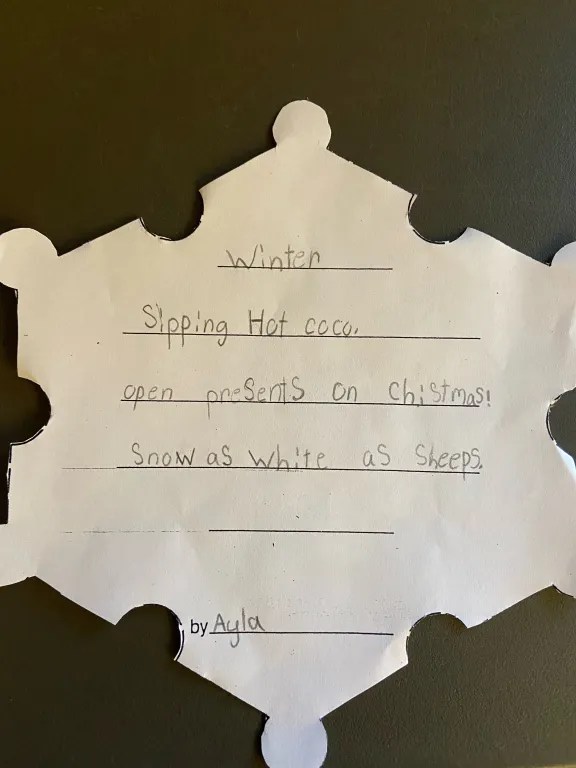 Winter
Sipping Hot coco.
open presents on Chistmas!
Snow as white as Sheeps.
by Ayla